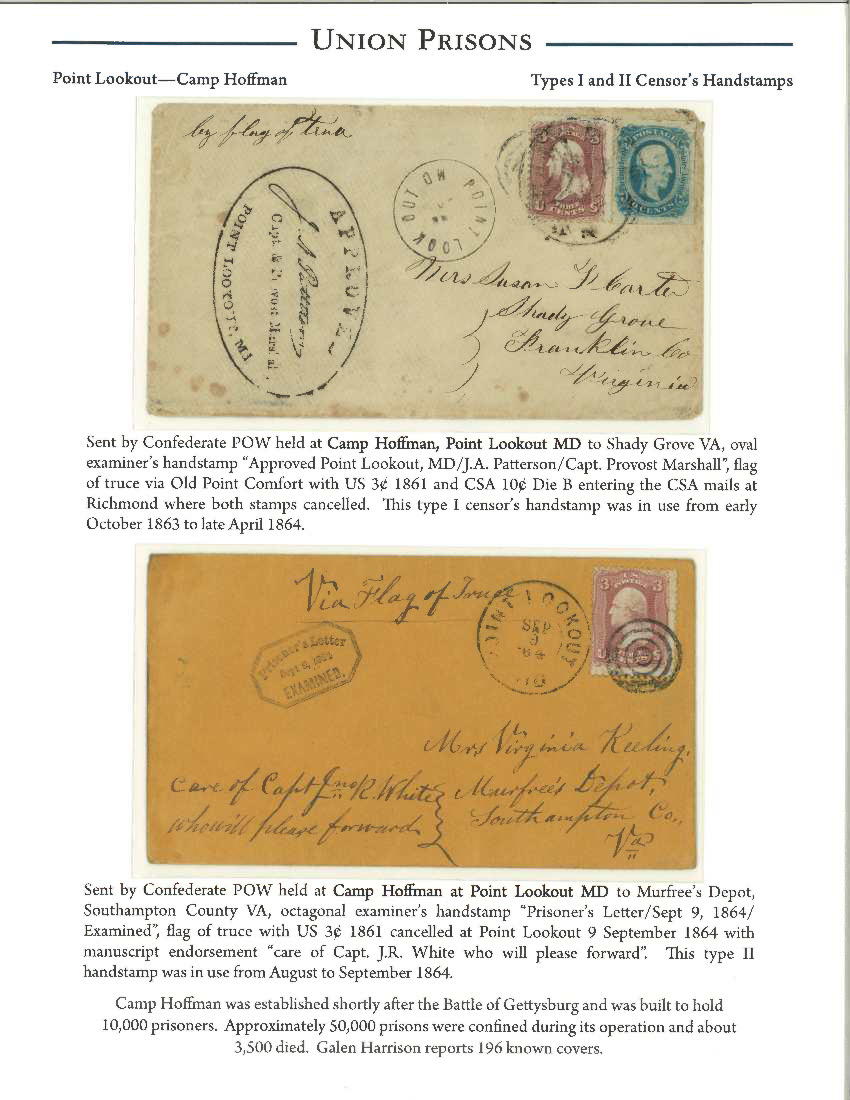 UNION PRISONS
Point Lookout—Camp Hoffman
Types I and II Censor's Handstamps
by flag of truce
APPROVED
J. A. Patterson
Capt. & Provost Marshal
POINT LOOKOUT, MD
POINT LOOKOUT MD
THREE CENTS
POSTAGE
TEN CENTS
Mrs Susan F Carter
Shady Grove
Franklin Co
Virginia
Sent by Confederate POW held at Camp Hoffman, Point Lookout MD to Shady Grove VA, oval
examiner's handstamp "Approved Point Lookout, MD/J.A. Patterson/Capt. Provost Marshall", flag
of truce via Old Point Comfort with US 3¢ 1861 and CSA 10¢ Die B entering the CSA mails at
Richmond where both stamps cancelled. This type I censor's handstamp was in use from early
October 1863 to late April 1864.
Via Flag of Truce
POINT LOOKOUT
SEP
9
'64
MD
U.S.
3 POSTAGE 3
Prisoner's Letter
Sept 9, 1864
EXAMINED.
Mrs Virginia Keeling,
Care of Capt Jno R. White
Murfree's Depot,
who will please forward
Southampton Co.,
Va
Sent by Confederate POW held at Camp Hoffman at Point Lookout MD to Murfree's Depot,
Southampton County VA, octagonal examiner's handstamp "Prisoner's Letter/Sept 9, 1864/
Examined", flag of truce with US 3¢ 1861 cancelled at Point Lookout 9 September 1864 with
manuscript endorsement "care of Capt. J.R. White who will please forward". This type II
handstamp was in use from August to September 1864.
Camp Hoffman was established shortly after the Battle of Gettysburg and was built to hold
10,000 prisoners. Approximately 50,000 prisons were confined during its operation and about
3,500 died. Galen Harrison reports 196 known covers.